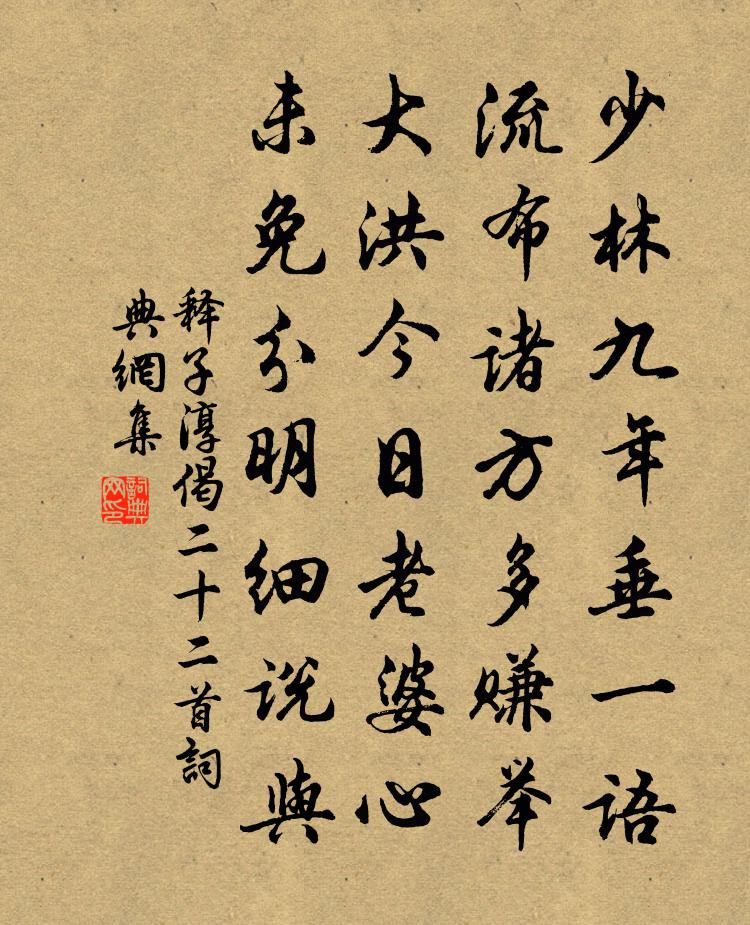 少林九年垂一语
流布诸方多赚举
大洪今日老婆心
未免分明细说与
释子淳偈二十二首詞
典網集
詞典
网印